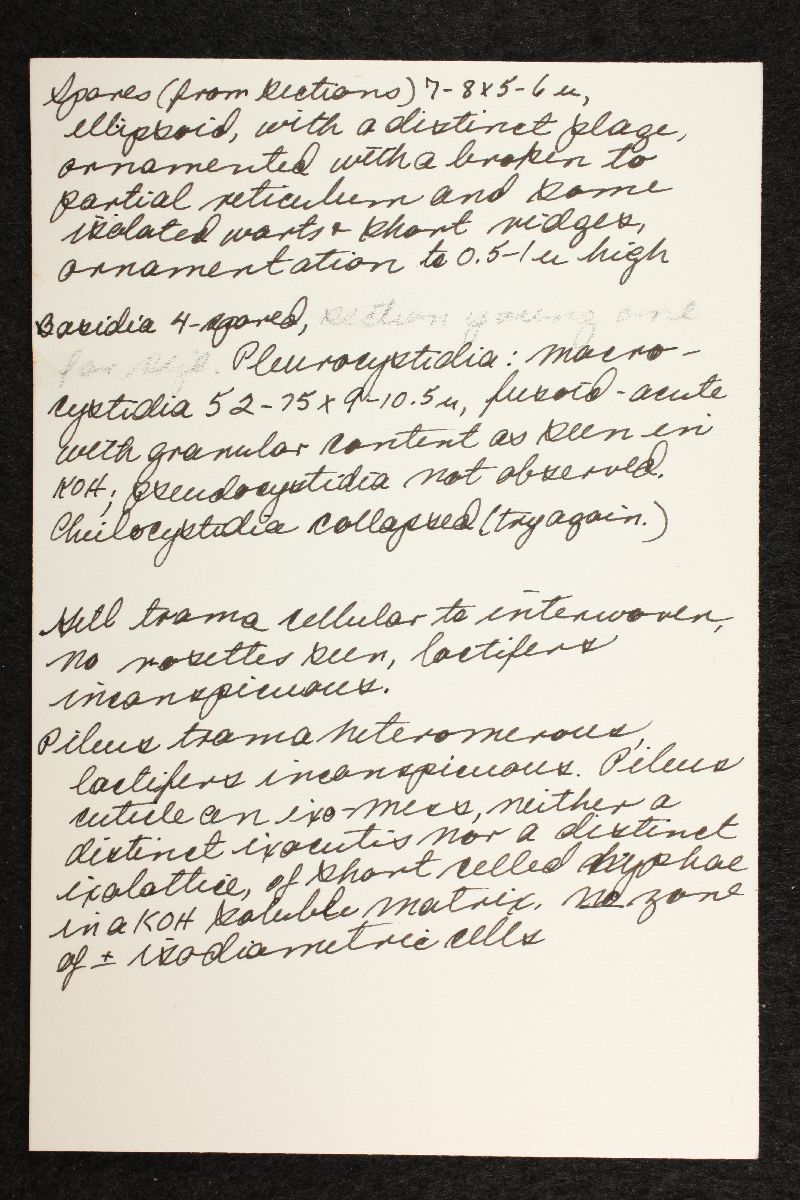 Spores (from sections) 7-8x5-6 u,
ellipsoid, with a distinct plage,
ornamented with a broken to
partial reticulum and some
isolated warts & short ridges,
ornamentation to 0.5-1 u high
Basidia 4-spored, section young one
for size. Pleurocystidia: macro-
cystidia 52-75x9-10.5 u, fusoid-acute
with granular content as seen in
KOH; pseudocystidia not observed.
Cheilocystidia collapsed (try again.)
Gill trama cellular to interwoven,
no rosettes seen, lactifers
inconspicuous.
Pileus trama heteromerous,
lactifers inconspicuous. Pileus
cuticle an ixo-mess, neither a
distinct ixocutis nor a distinct
ixolattice, of short celled hyphae
in a KOH soluble matrix. No zone
of ± isodiametric cells